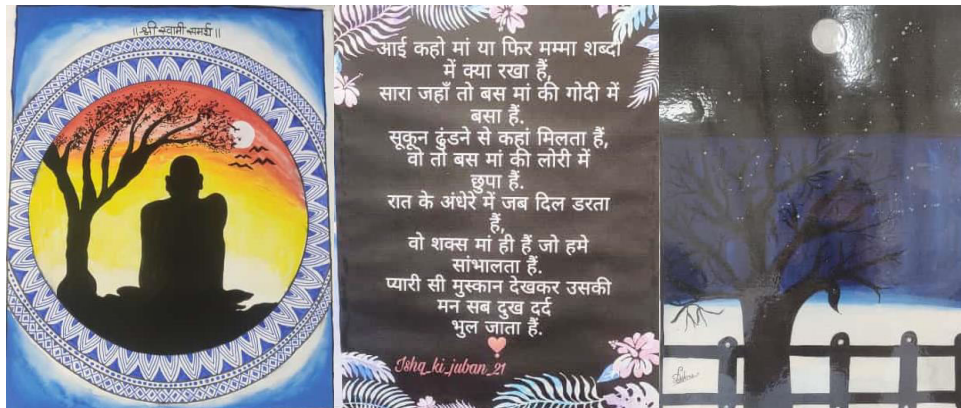 ॥ श्री स्वामी समर्थ ॥
आई कहो मां या फिर मम्मा शब्दों
में क्या रखा हैं,
सारा जहाँ तो बस मां की गोदी में
बसा हैं.
सूकून ढुंडने से कहां मिलता हैं,
वो तो बस मां की लोरी में
छुपा हैं.
रात के अंधेरे में जब दिल डरता
हैं,
वो शक्स मां ही हैं जो हमे
सांभालता हैं.
प्यारी सी मुस्कान देखकर उसकी
मन सब दुख दर्द
भुल जाता हैं.
Ishq_ki_juban_21